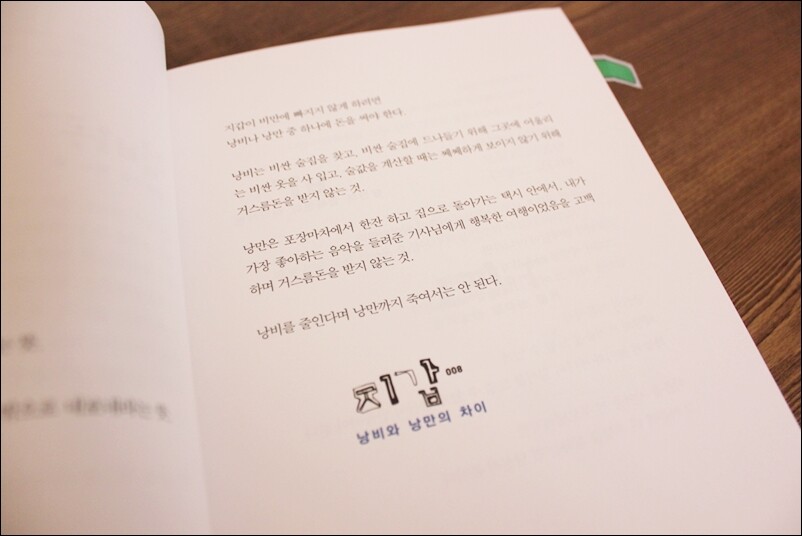 지갑이 비만에 빠지지 않게 하려면
낭비나 낭만 중 하나에 돈을 써야 한다.
낭비는 비싼 술집을 찾고, 비싼 술집에 드나들기 위해 그곳에 어울리
는 비싼 옷을 사 입고, 술값을 계산할 때는 쩨쩨하게 보이지 않기 위해
거스름돈을 받지 않는 것.
낭만은 포장마차에서 한잔 하고 집으로 돌아가는 택시 안에서, 내가
가장 좋아하는 음악을 들려준 기사님에게 행복한 여행이었음을 고백
하며 거스름돈을 받지 않는 것.
낭비를 줄인다며 낭만까지 죽여서는 안 된다.
지갑 008
낭비와 낭만의 차이